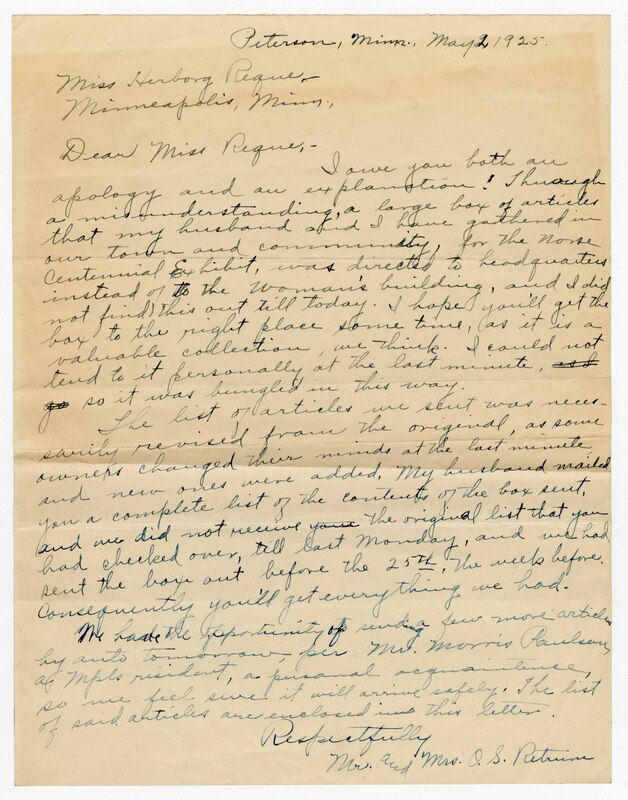 Peterson, Minn., May 2 1925.
Miss Herborg Reque,-
Minneapolis, Minn.,
Dear Miss Reque,-
I owe you both an
apology and an explanation! Through
a misunderstanding, a large box of articles
that my husband and I have gathered in
our town and community, for the Norse
Centennial Exhibit, was directed to headquarters
instead of to the Woman's building, and I did
not find this out till today. I hope you'll get the
box to the right place some time, as it is a
valuable collection, we think. I could not
tend to it personally at the last minute, as I
so it was bungled in this way.
The list of articles we sent was neces-
sarily revised from the original, as some
owners changed their minds at the last minute
and new ones were added. My husband mailed
you a complete list of the contents of the box sent,
and we did not receive your the original list that you
had checked over, till last Monday, and we had
sent the box out before the 25th, the week before.
Consequently you'll get everything we had.
We have the opportunity of sending a few more articles
by auto tomorrow, per Mr. Morris Paulson,
a Mpls resident, a personal acquaintence,
so we feel sure it will arrive safely. The list
of said articles are enclosed in this letter.
Respectfully
Mr. and Mrs. O. S. Retrum